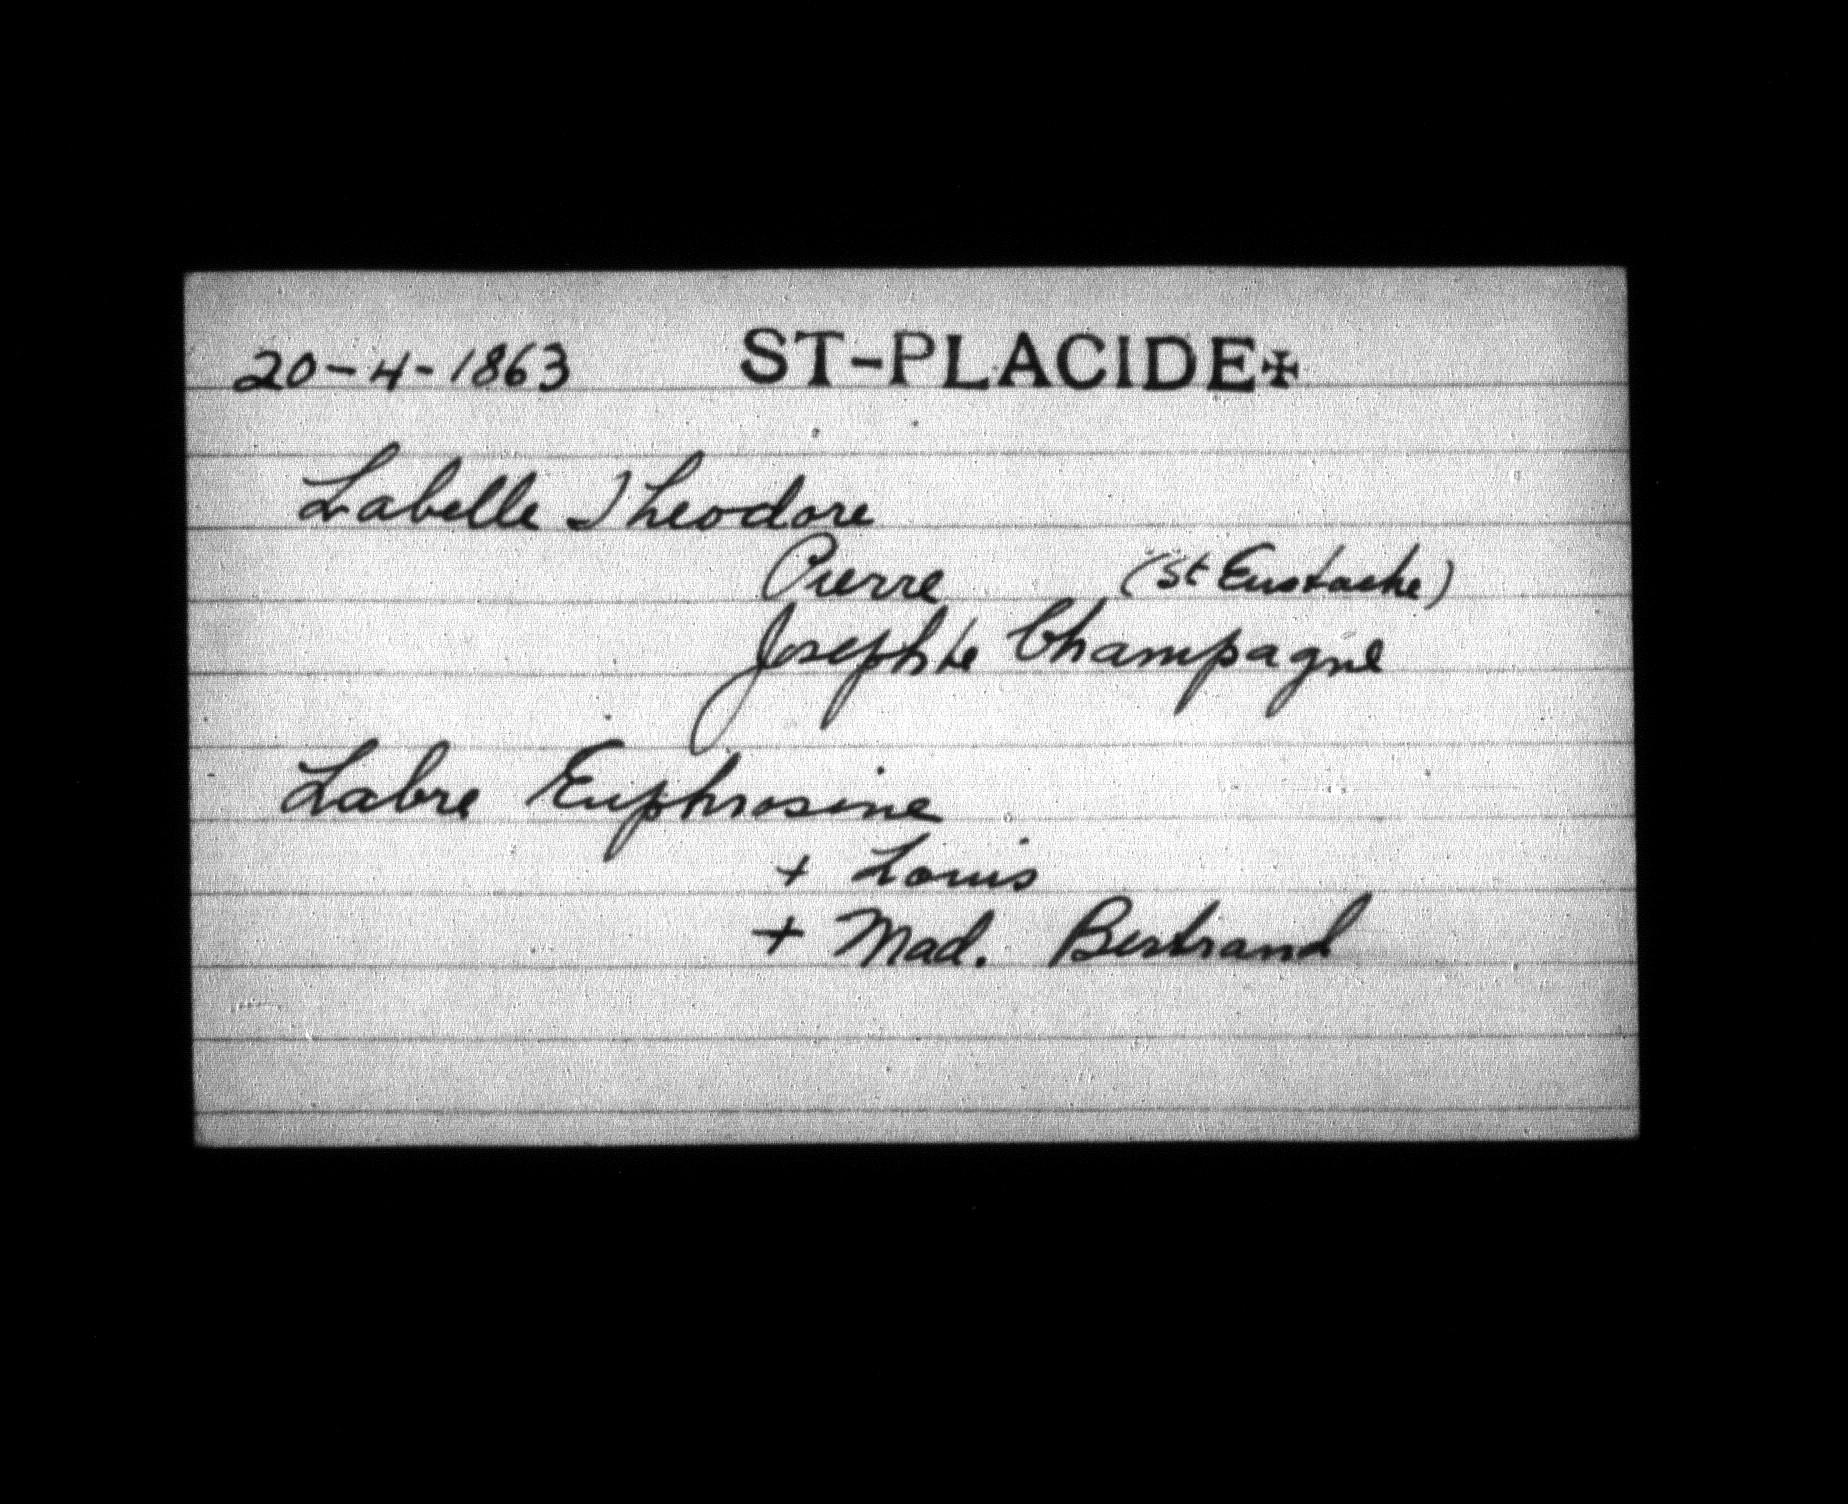 20-4-1863 ST-PLACIDE✠
Labelle Theodore
Pierre (St Eustache)
Josephte Champagne
Labre Euphrosine
+ Louis
+ Mad. Bertrand